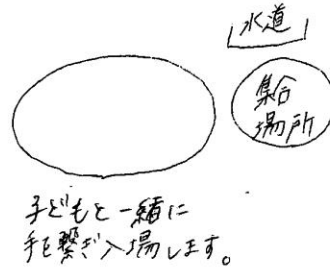 水道
集合
場所
子どもと一緒に
手を繋ぎ入場します。